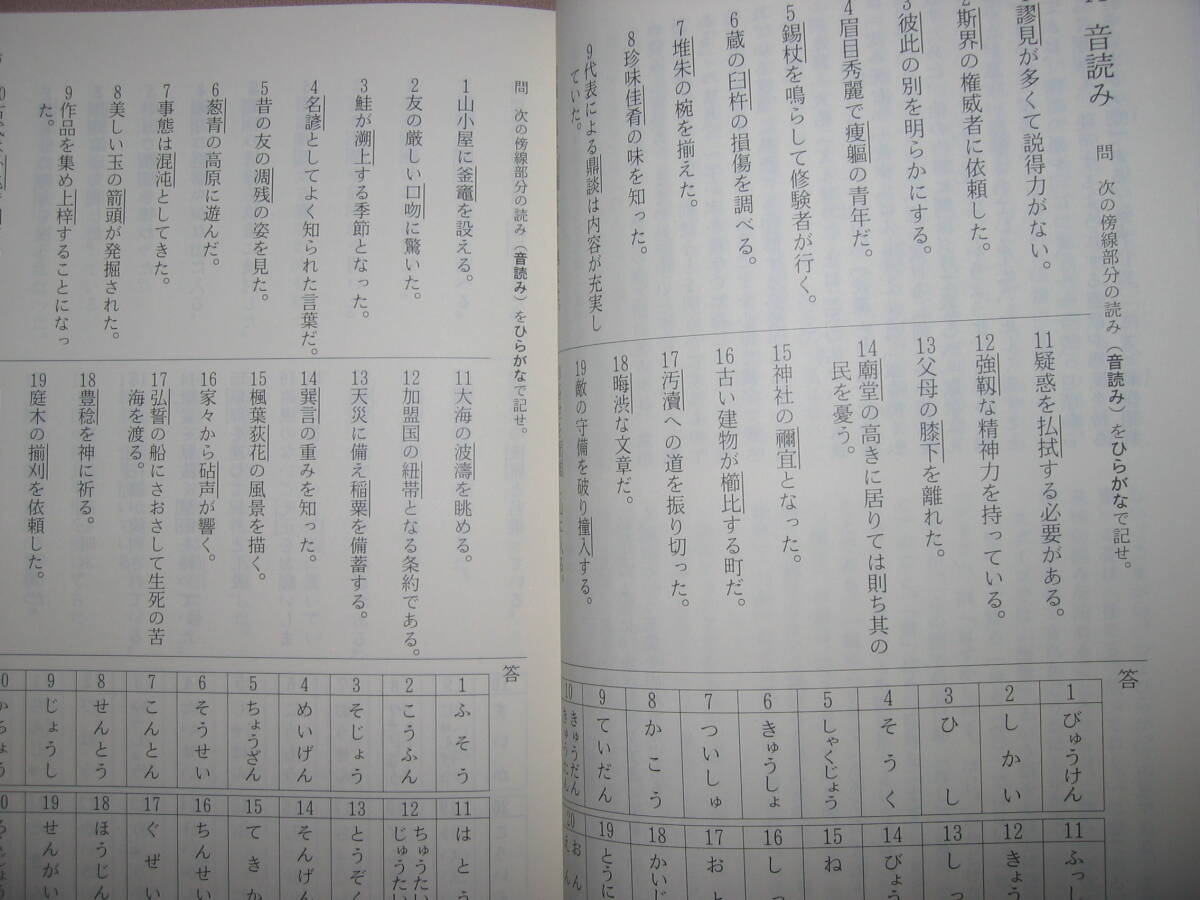 音読み 問 次の傍線部分の読み（音読み）をひらがなで記せ。
1謬見が多くて説得力がない。
2斯界の権威者に依頼した。
3彼此の別を明らかにする。
4眉目秀麗で痩軀の青年だ。
5錫杖を鳴らして修験者が行く。
6蔵の臼杵の損傷を調べる。
7堆朱の椀を揃えた。
8珍味佳肴の味を知った。
9代表による鼎談は内容が充実し
ていた。
11疑惑を払拭する必要がある。
12強靱な精神力を持っている。
13父母の膝下を離れた。
14廟堂の高きに居りては則ち其の
民を憂う。
15神社の禰宜となった。
16古い建物が櫛比する町だ。
17汚瀆への道を振り切った。
18晦渋な文章だ。
19敵の守備を破り撞入する。
答
1 びゅうけん
2 しかい
3 ひし
4 そうく
5 しゃくじょう
6 きゅうしょ
7 ついしゅ
8 かこう
9 ていだん
10 きゅうだん
11 ふっし
12 きょう
13 しっ
14 びょう
15 ね
16 しっ
17 おと
18 かいじ
19 とうに
20 おん
えん
問 次の傍線部分の読み（音読み）をひらがなで記せ。
1山小屋に釜竈を設える。
2友の厳しい口吻に驚いた。
3鮭が溯上する季節となった。
4名諺としてよく知られた言葉だ。
5昔の友の凋残の姿を見た。
6葱青の高原に遊んだ。
7事態は混沌としてきた。
8美しい玉の箭頭が発掘された。
9作品を集め上梓することになっ
た。
11大海の波濤を眺める。
12加盟国の紐帯となる条約である。
13天災に備え稲粟を備蓄する。
14巽言の重みを知った。
15楓葉荻花の風景を描く。
16家々から砧声が響く。
17弘誓の船にさおさして生死の苦
海を渡る。
18豊稔を神に祈る。
19庭木の揃刈を依頼した。
答
1 ふそう
2 こうふん
3 そじょう
4 めいげん
5 ちょうざん
6 そうせい
7 こんとん
8 せんとう
9 じょうし
11 はとう
12 ちゅうたい
じゅうたい
13 とうぞく
14 そんげん
15 てきか
16 ちんせい
17 ぐぜい
18 ほうじん
19 せんがい